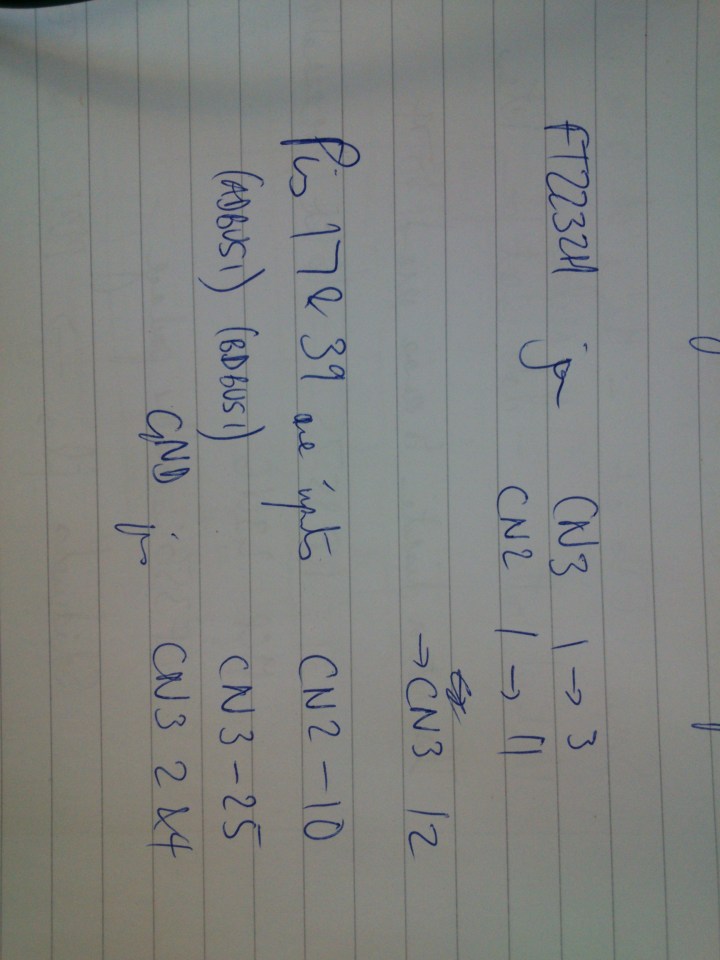 FT2232H for CN3 1 → 3
CN2 1 → 11
→ CN3 12
Pins 17 & 39 are inputs CN2 - 10
(ADBUS1) (BDBUS1) CN3 - 25
GND for CN3 2 & 4